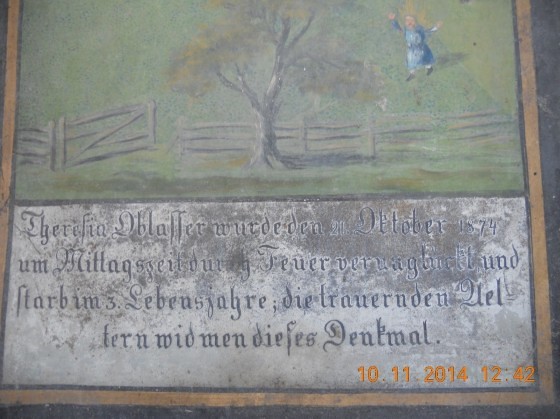 Theresia Oblasser wurde den 21. Oktober 1874
um Mittagszeit durch Feuer verunglückt und
starb im 3. Lebensjahre; die trauernden Ael-
tern widmen dieses Denkmal.
10.11.2014 12:42